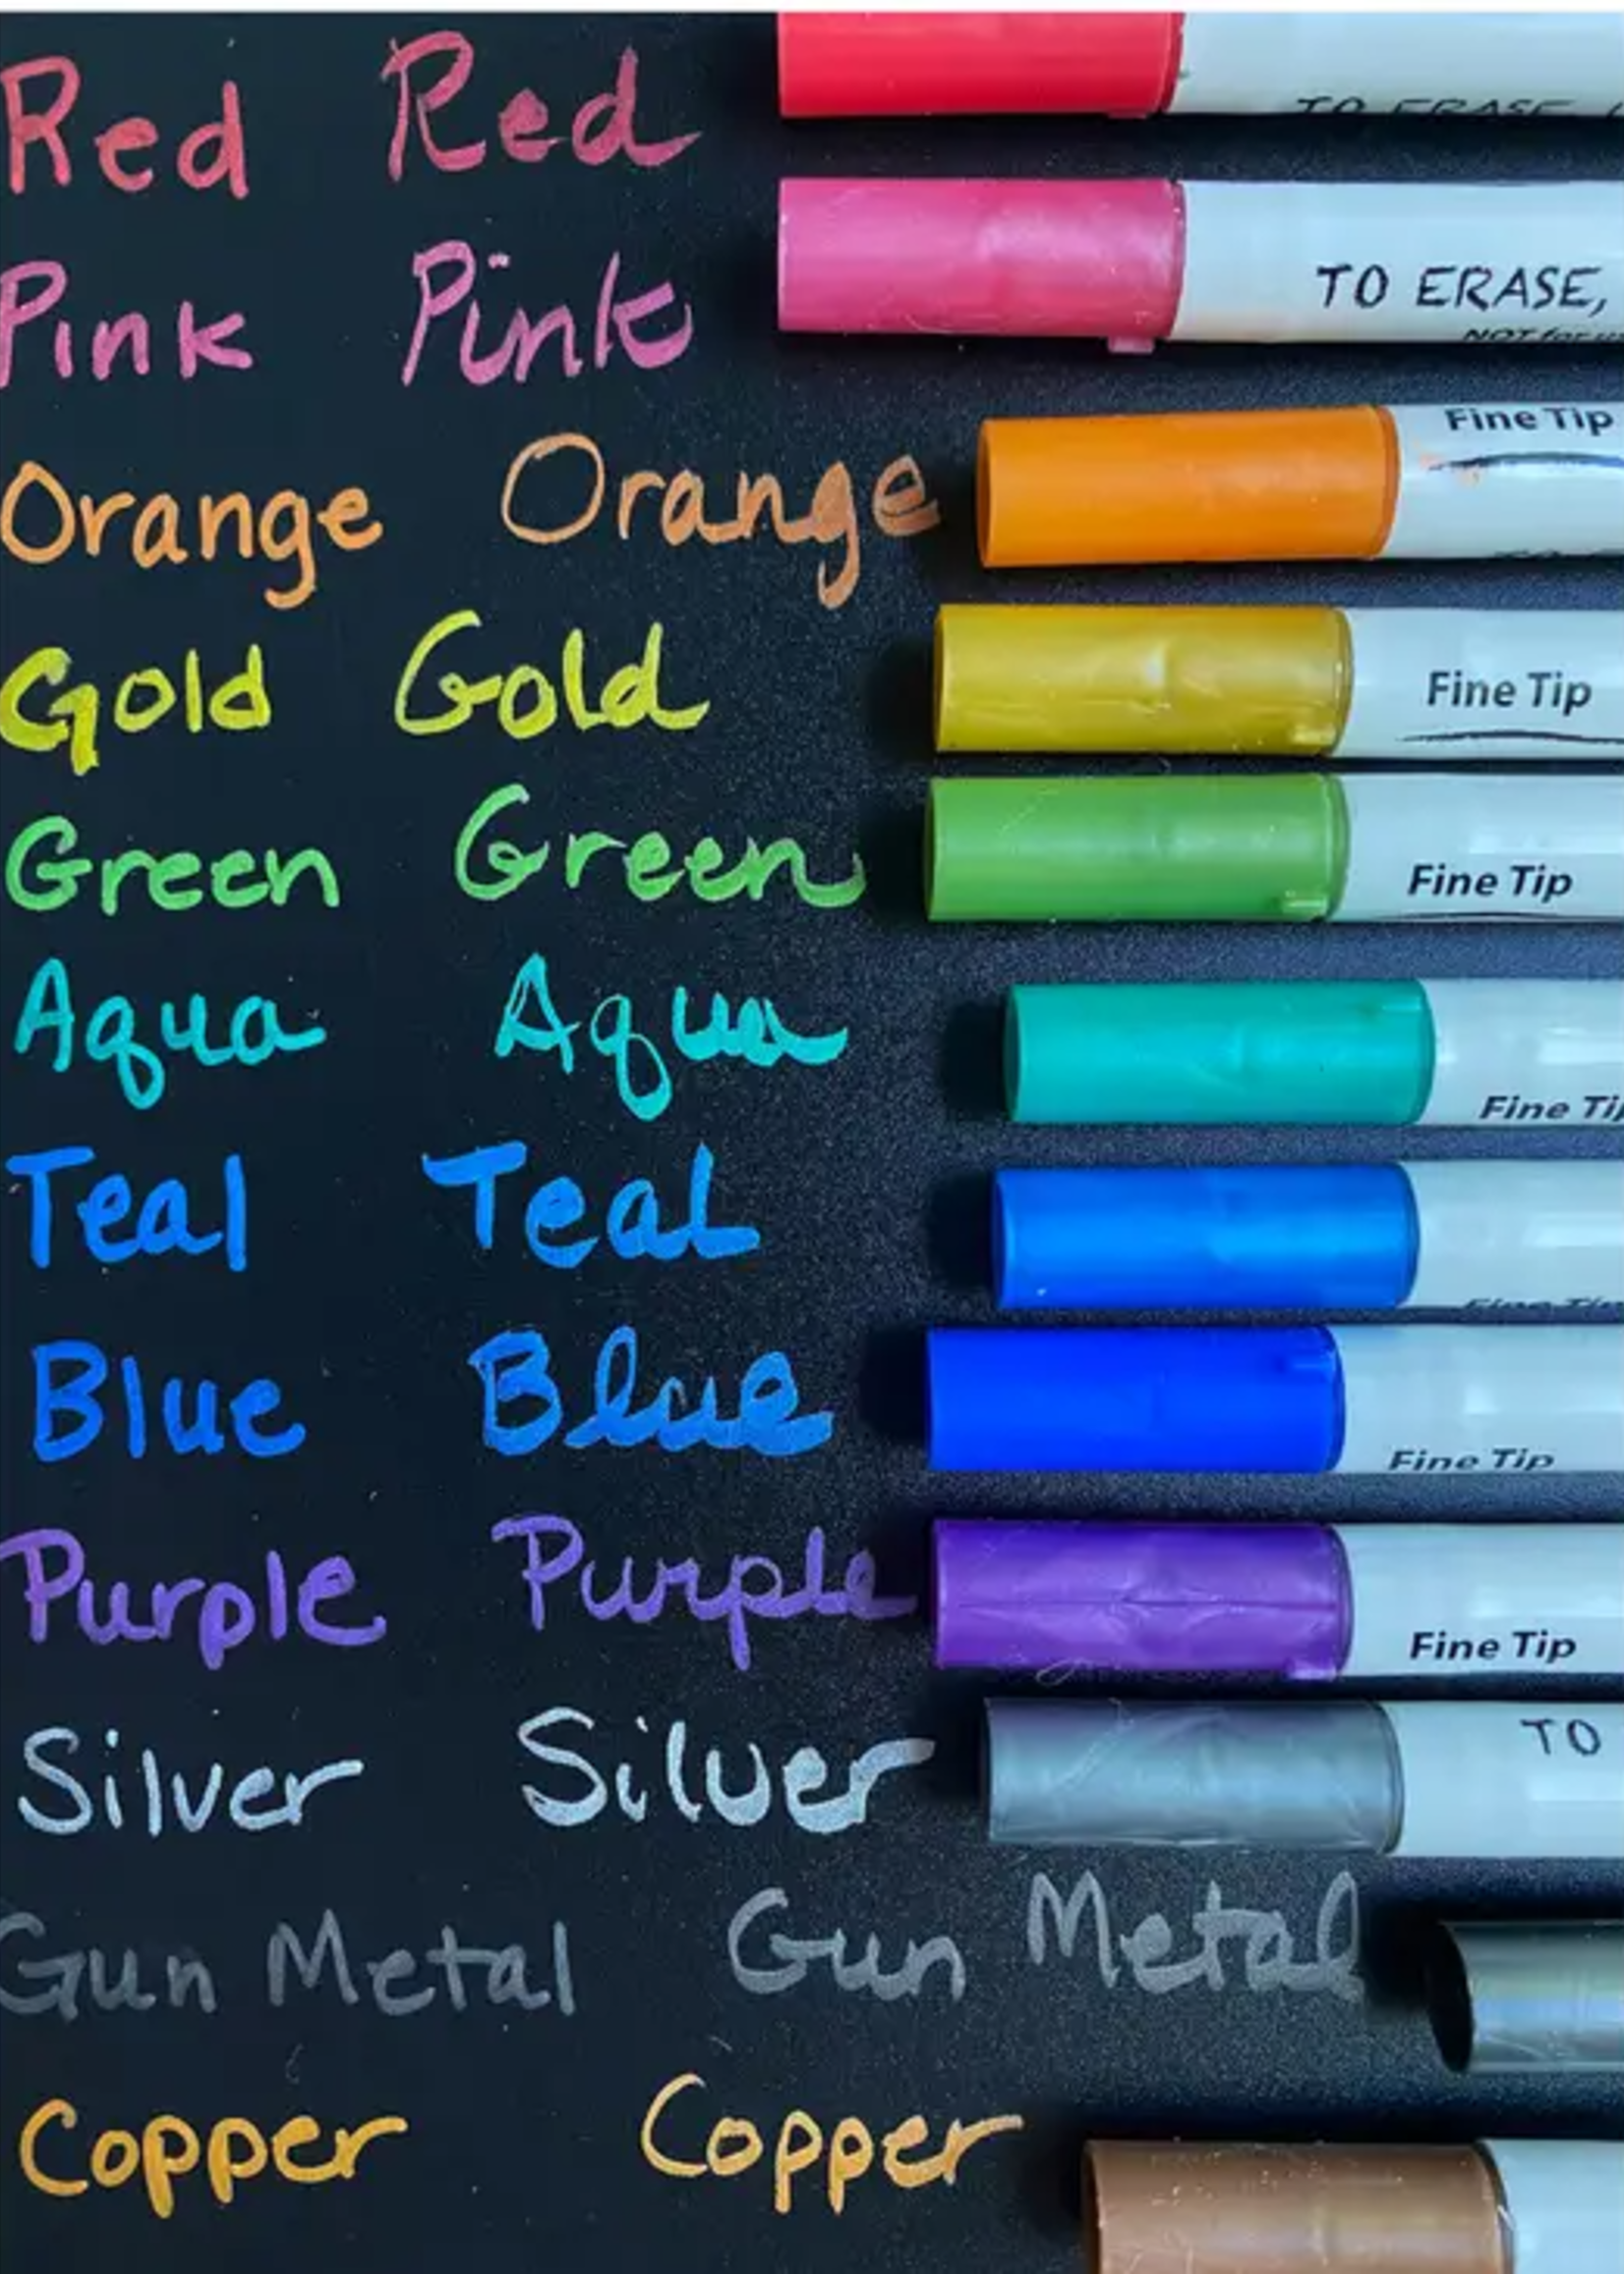 Red Red TO ERASE,
Pink Pink TO ERASE,
NOT for
Orange Orange Fine Tip
Gold Gold Fine Tip
Green Green Fine Tip
Aqua Aqua Fine Ti
Teal Teal Fine Tip
Blue Blue Fine Tip
Purple Purple Fine Tip
Silver Silver TO
Gun Metal Gun Metal
Copper Copper